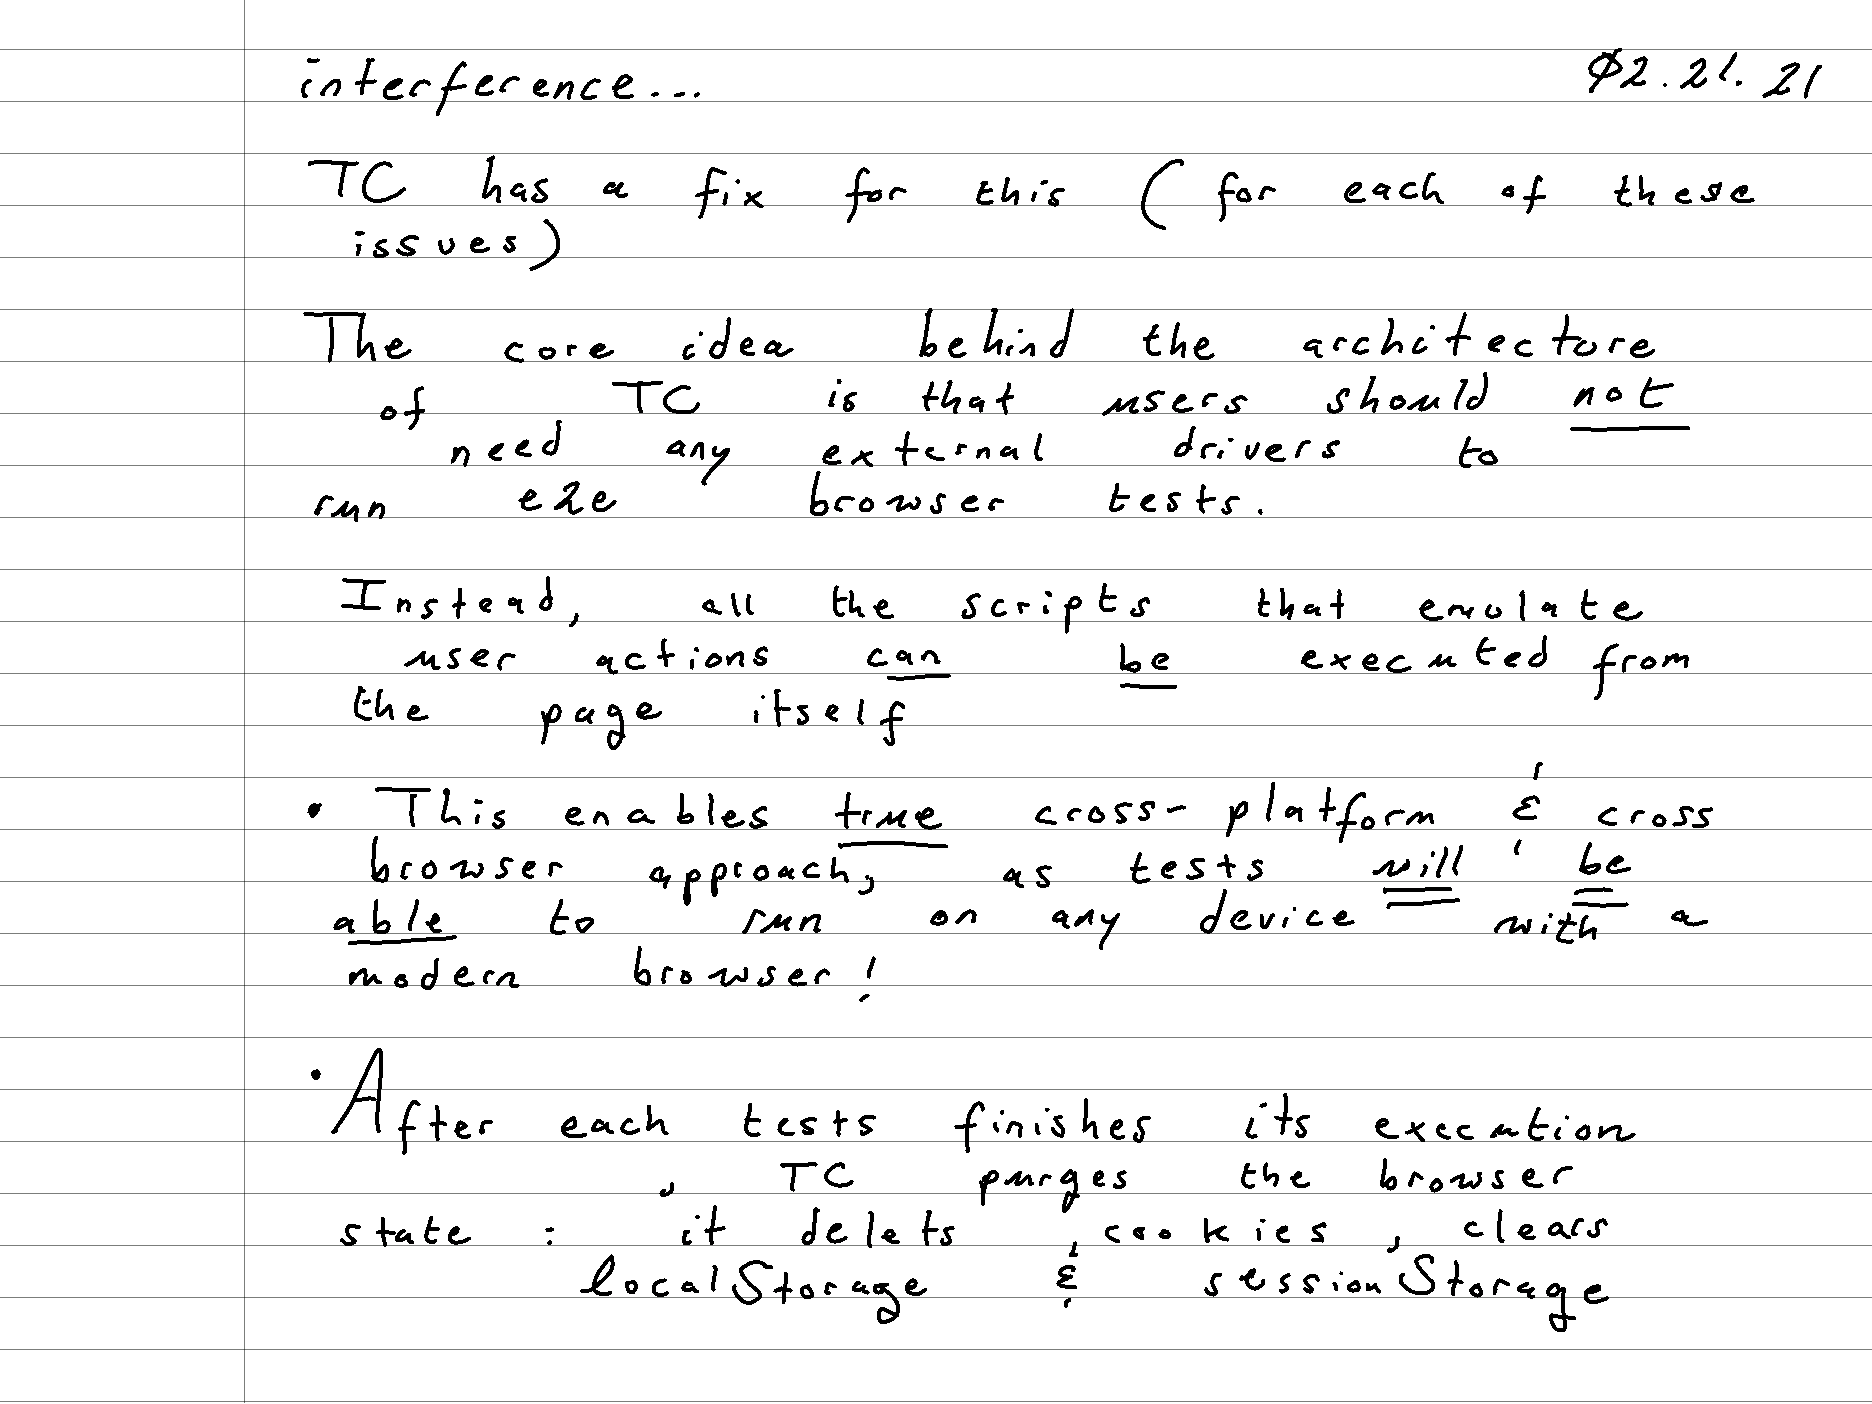 interference... Ø2.21.21
TC has a fix for this (for each of these
issues)
The core idea behind the architecture
of TC is that users should not
need any external drivers to
run e2e browser tests.
Instead, all the scripts that emulate
user actions can be executed from
the page itself
• This enables true cross-platform & cross
browser approach, as tests will be
able to run on any device with a
modern browser!
• After each tests finishes its execution
, TC purges the browser
state : it delets cookies, clears
localStorage & sessionStorage